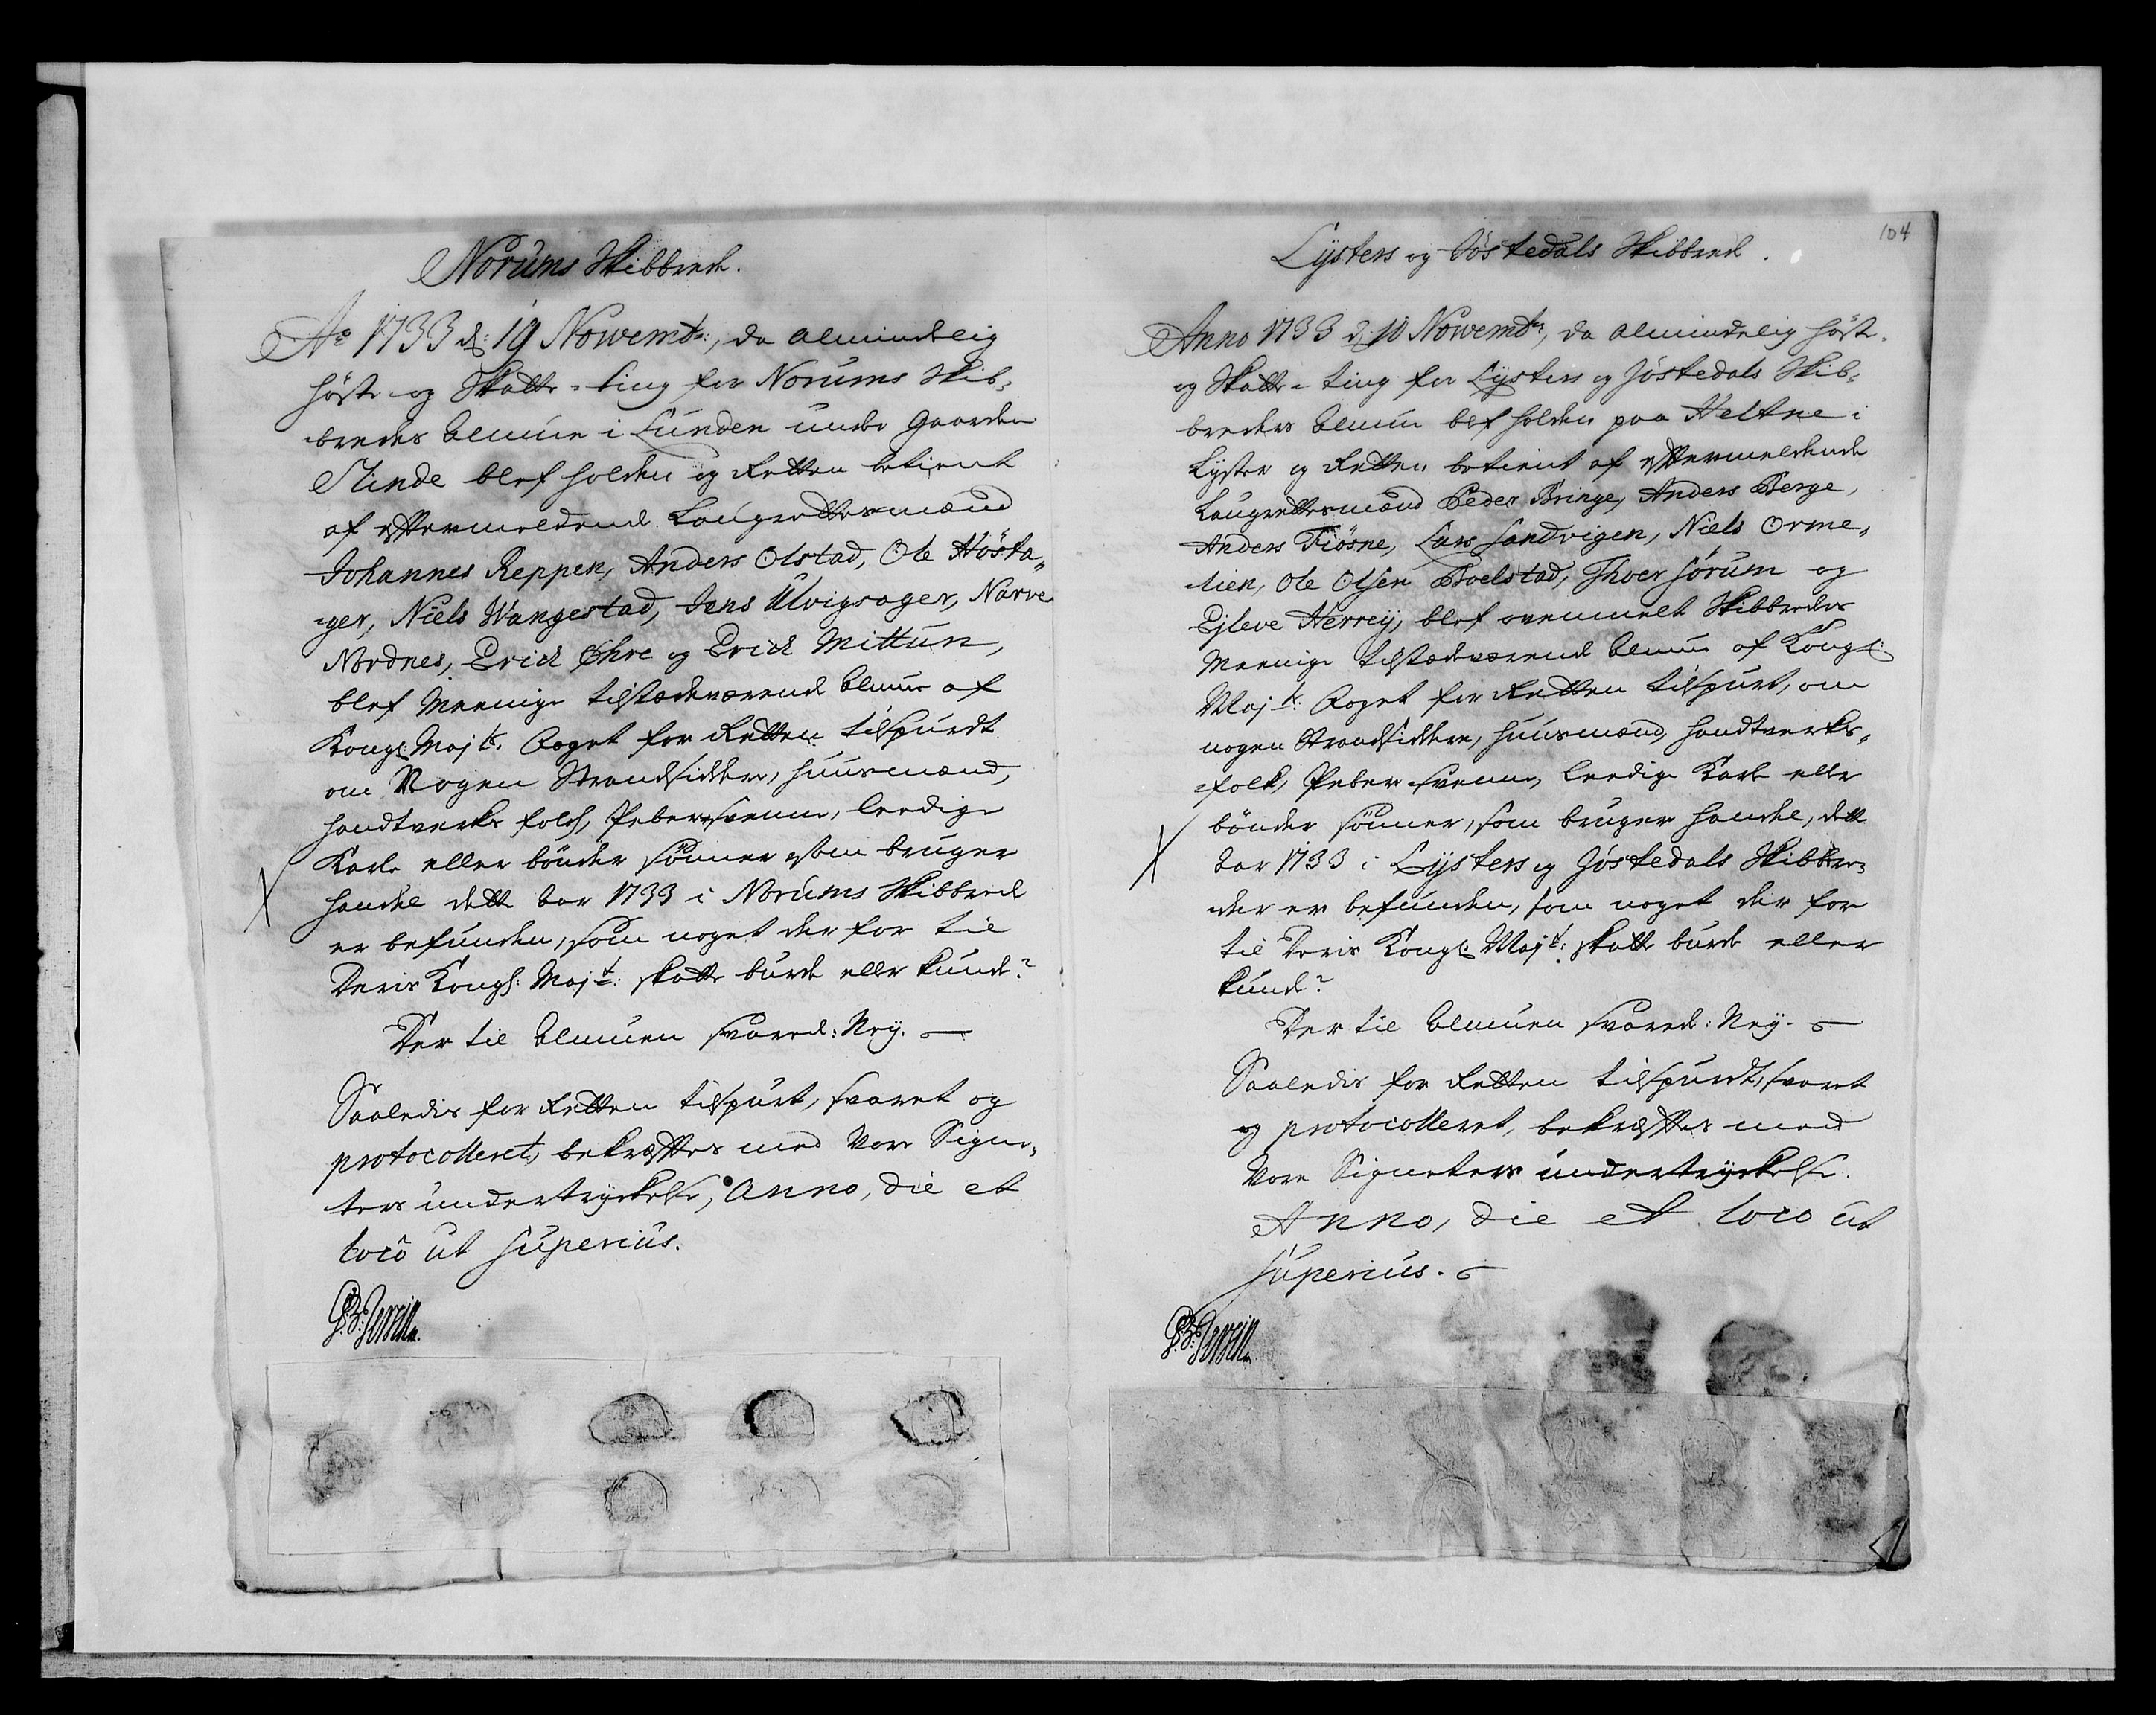 Norums Skibbrede.
Ao 1733 d: 19 Novembr:, da almindelig
höste og Skatte-ting for Norums Skib-
bredes Almue i Lunden under Gaarden
Slinde blef holden og Retten betient
af eftermeldende Laugrettesmænd
Johannes Reppen, Anders Olstad, Ole Hösta-
ger, Niels Wangestad, Jens Ulvigsager, Narve
Nordnes, Erich Øhre og Erich Mittun,
blef Meenige tilstædeværende Almue af
Kongl: Majts: Foget for Retten tilspurdt
om Nogen Strandsiddere, huusmænd,
handtverks folch, Pebersvenne, leedige
Karle eller bönder sönner som bruger
handel dette aar 1733 i Norums Skibbrede
er befunden, som noget der for til
Deris Kongl: Majt: skatte burde eller kunde?
Der til Almuen svarede: Neij.
Saaledis for Retten tilspurt, svaret og
protocolleret, bekræftes med vore Signe-
ters undertrykelse, Anno, die et
loco ut superius.
104
Lysters og Jöstedals Skibbrede.
Anno 1733 d: 10 Novembr:, da almindelig höste-
og Skatte-ting for Lysters og Jöstedals Skib-
breders Almue blef holden paa Heltne i
Lyster og Retten betient af eftermeldende
Laugrettesmænd Peder Bringe, Anders Berge,
Anders Fiösne, Lars Sandvigen, Niels Orme-
lien, Ole Olsen Boelstad, Thoer Sörum og
Ejleve Herrej, blef ovenmelte Skibbreders
Meenige tilstædeværende Almue af Kongl:
Majts: Foget for Retten tilspurt, om
nogen Strandsiddere, huusmænd, handtverks-
folk, Peber svenne, leedige Karle eller
bönder sönner, som bruger handel, dette
aar 1733 i Lysters og Jöstedals Skibbre-
der er befunden, som noget der for
til Deris Kongl: Majt: skatte burde eller
kunde?
Der til Almuen svarede: Neij.
Saaledis for Retten tilspurdt, svaret
og protocolleret, bekræftes med
vore Signeters undertryckelse.
Anno, die et loco ut
superius.